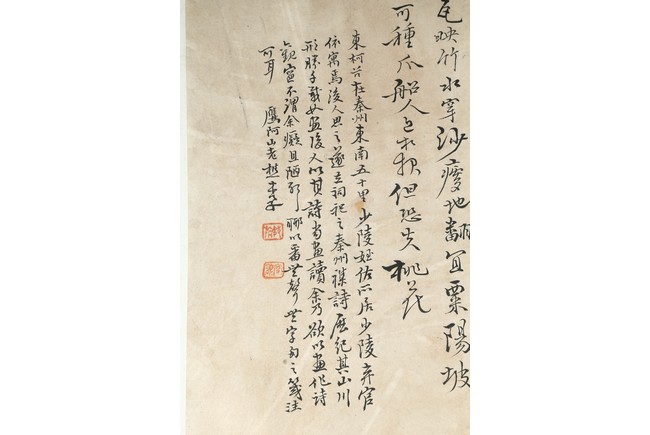 瓦映竹水穿沙瘦地翻宜粟陽坡
可種瓜船人近相報但恐失桃花
東柯谷在秦州東南五十里少陵姪佐所居少陵弃官
依寓焉後人思之遂立祠祀之秦州雜詩歷紀其山川
形勝千載如画後人以其詩當畫讀余乃欲以畫作詩
觀宜不謂余癡且陋耶聊以無聲無字句之箋注
可耳 鷹阿山老樵本孝